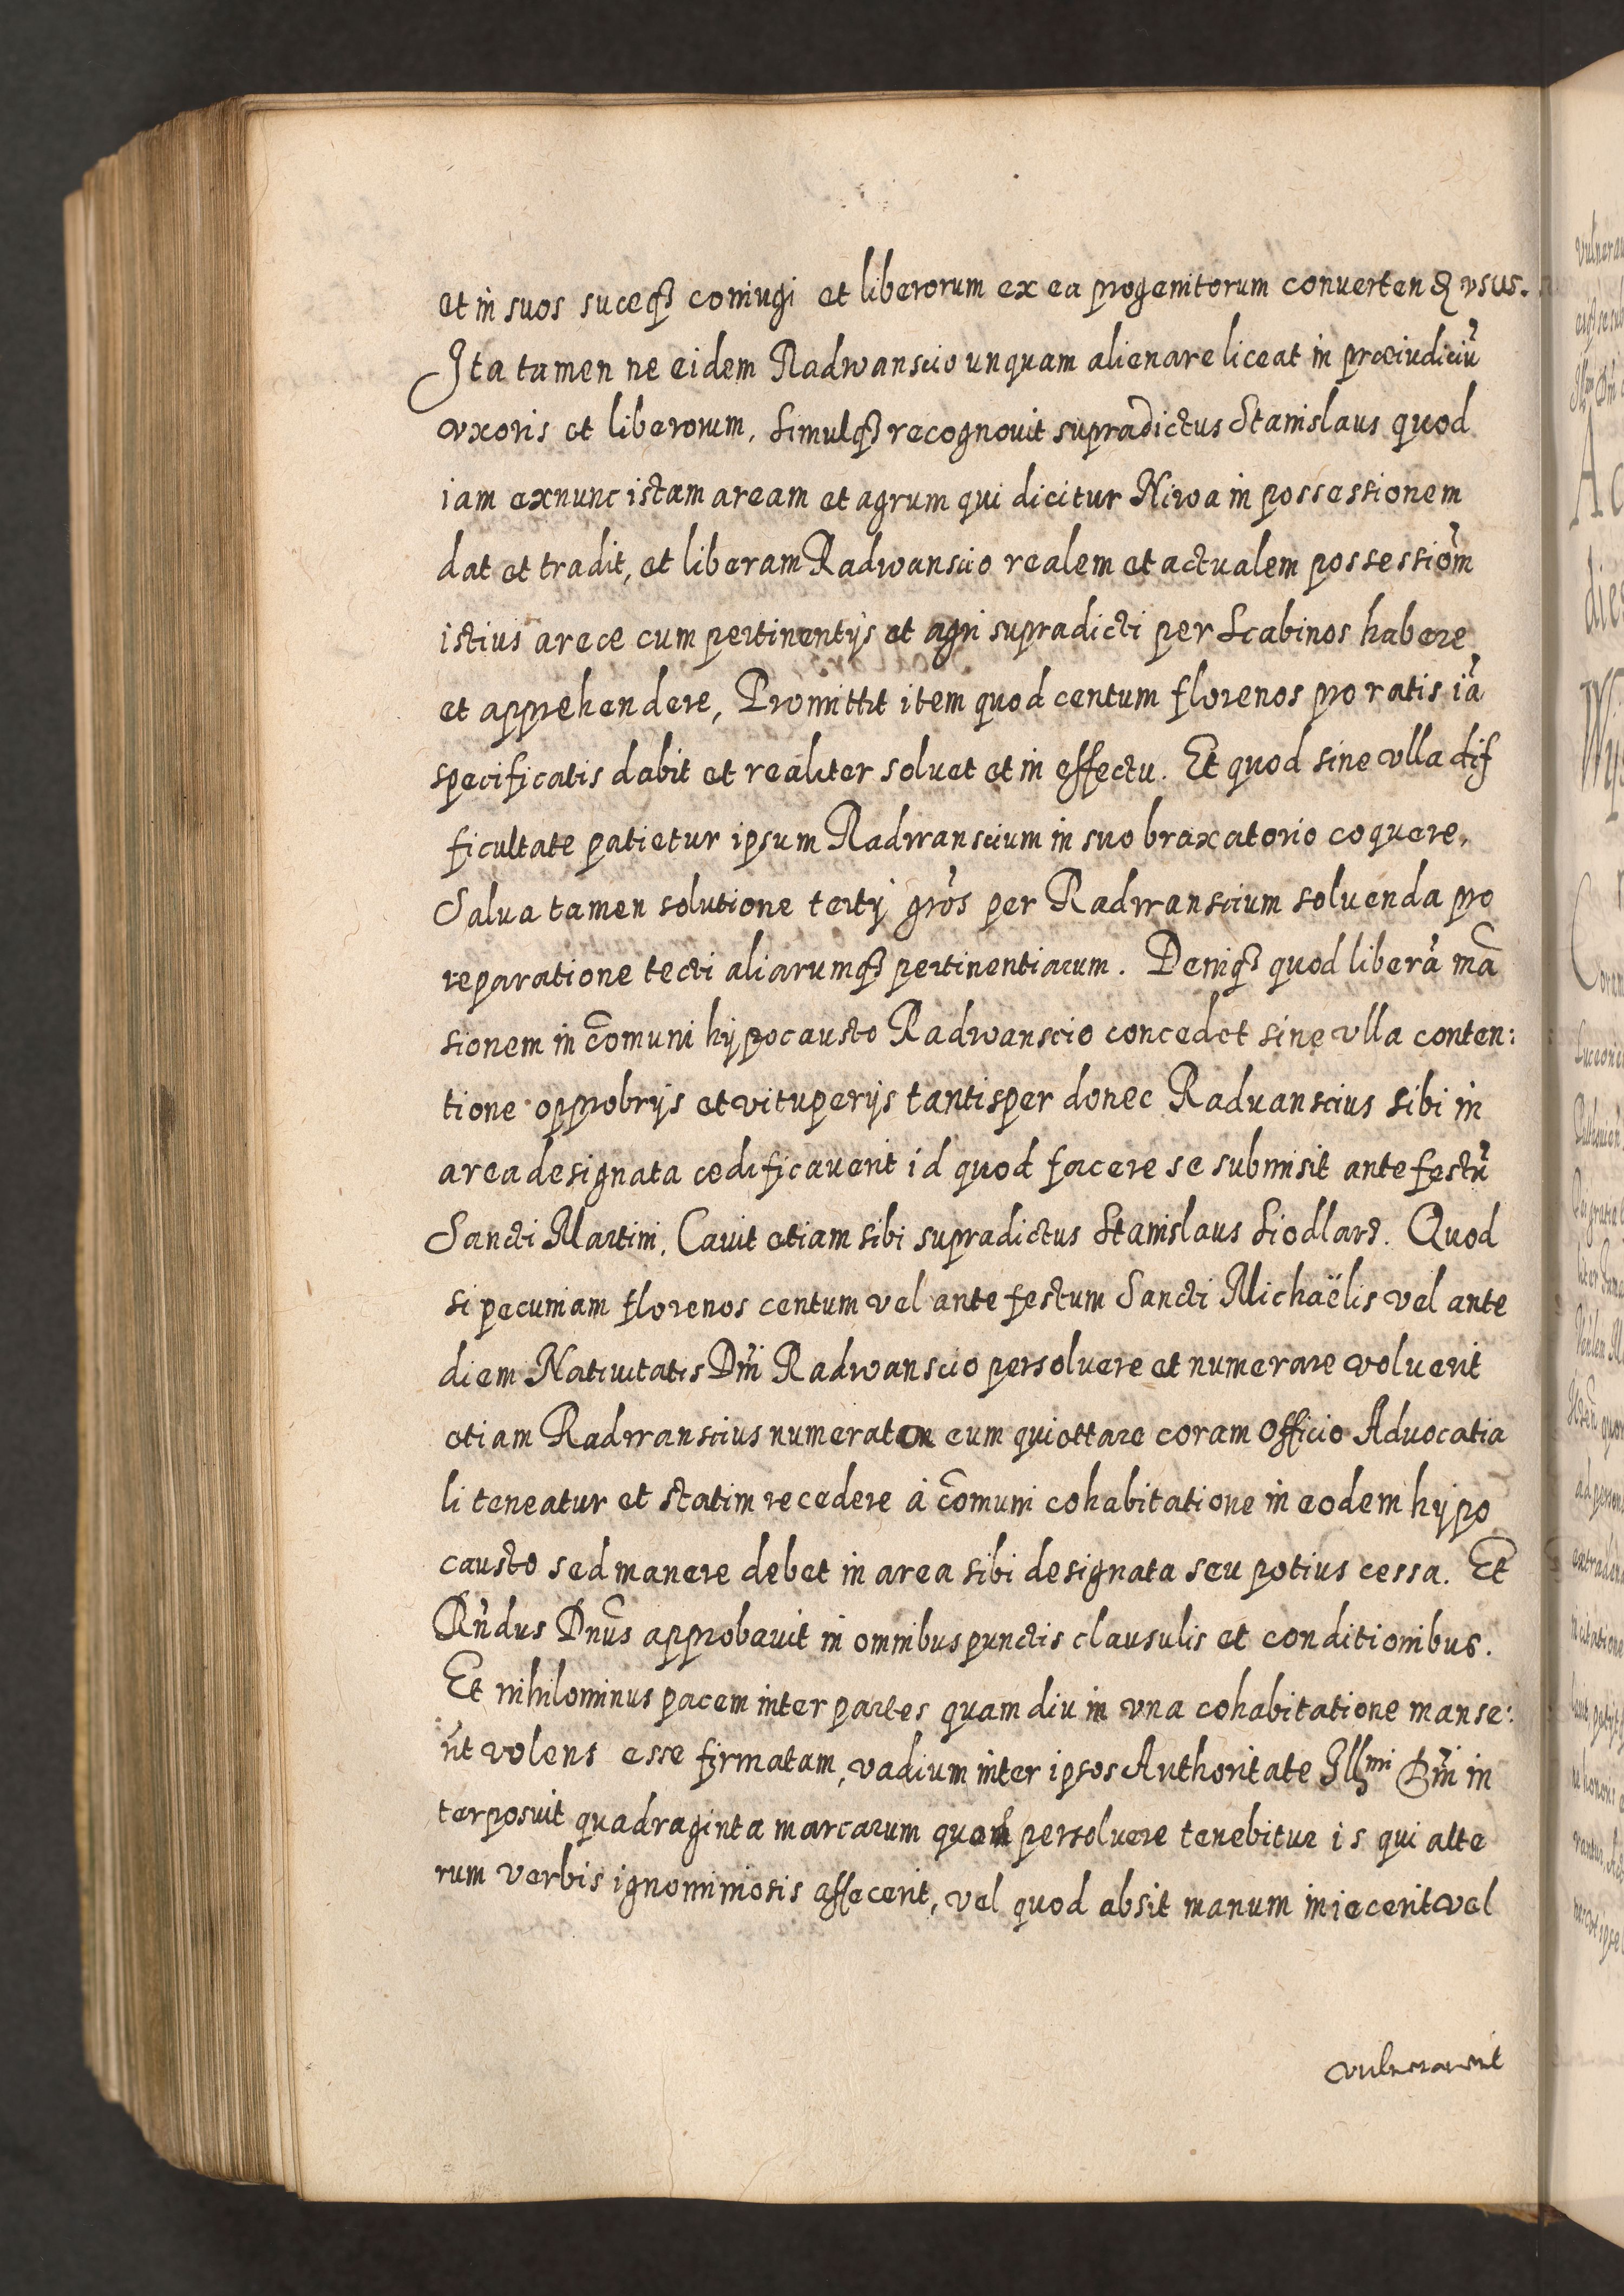 et in suos suceqꝫ coniugi et liberorum ex ea progenitorum conuerten vsus.
Ita tamen ne eidem Radwanscio unquam alienare liceat in præiudiciū
vxoris et liberorum. Simulqꝫ recognouit supradictus Stanislaus quod
iam exnunc istam aream et agrum qui dicitur Niwa in possessionem
dat et tradit, et liberam Radwanscio realem et actualem possessiom̄
istius areæ cum pertinentijs et agri supradicti per Scabinos habere
et apprehendere, Promittit item quod centum florenos pro ratis iā
specificatis dabit et realiter soluet et in effectu. Et quod sine vlla dif
ficultate patietur ipsum Radwanscium in suo braxatorio coquere,
Salua tamen solutione tertij gros̄ per Radwanscium soluenda pro
reparatione tecti aliarumqꝫ pertinentiarum. Deniqꝫ quod liberā mā
sionem in com̄uni hypocausto Radwanscio concedet sine vlla conten:
tione opprobrijs et vituperijs tantisper donec Raduanscius sibi in
area designata ædificauerit id quod facere se submisit ante festū
Sancti Martini. Cauit etiam sibi supradictus Stanislaus Siodlarz. Quod
si pecuniam florenos centum vel ante festum Sancti Michaëlis vel ante
diem Natiuitatis Dn̄i Radwanscio persoluere et numerare voluerit
etiam Radwanscius eum quiettare coram Officio Aduocatia
li teneatur et statim recedere à com̄uni cohabitatione in eodem hypo
causto sed manere debet in area sibi designata seu potius cessa. Et
Rn̄dus Dnūs approbauit in omnibus punctis clausulis et conditionibus.
Et nihilominus pacem inter partes quam diu in vna cohabitatione manse:
rīt volens esse firmatam, vadium inter ipsos Authoritate Illmi Dn̄i in
terposuit quadraginta marcarum quod persoluere tenebitur is qui alte
rum verbis ignominiosis affecerit, vel quod absit manum iniecerit vel
vulnerauerit